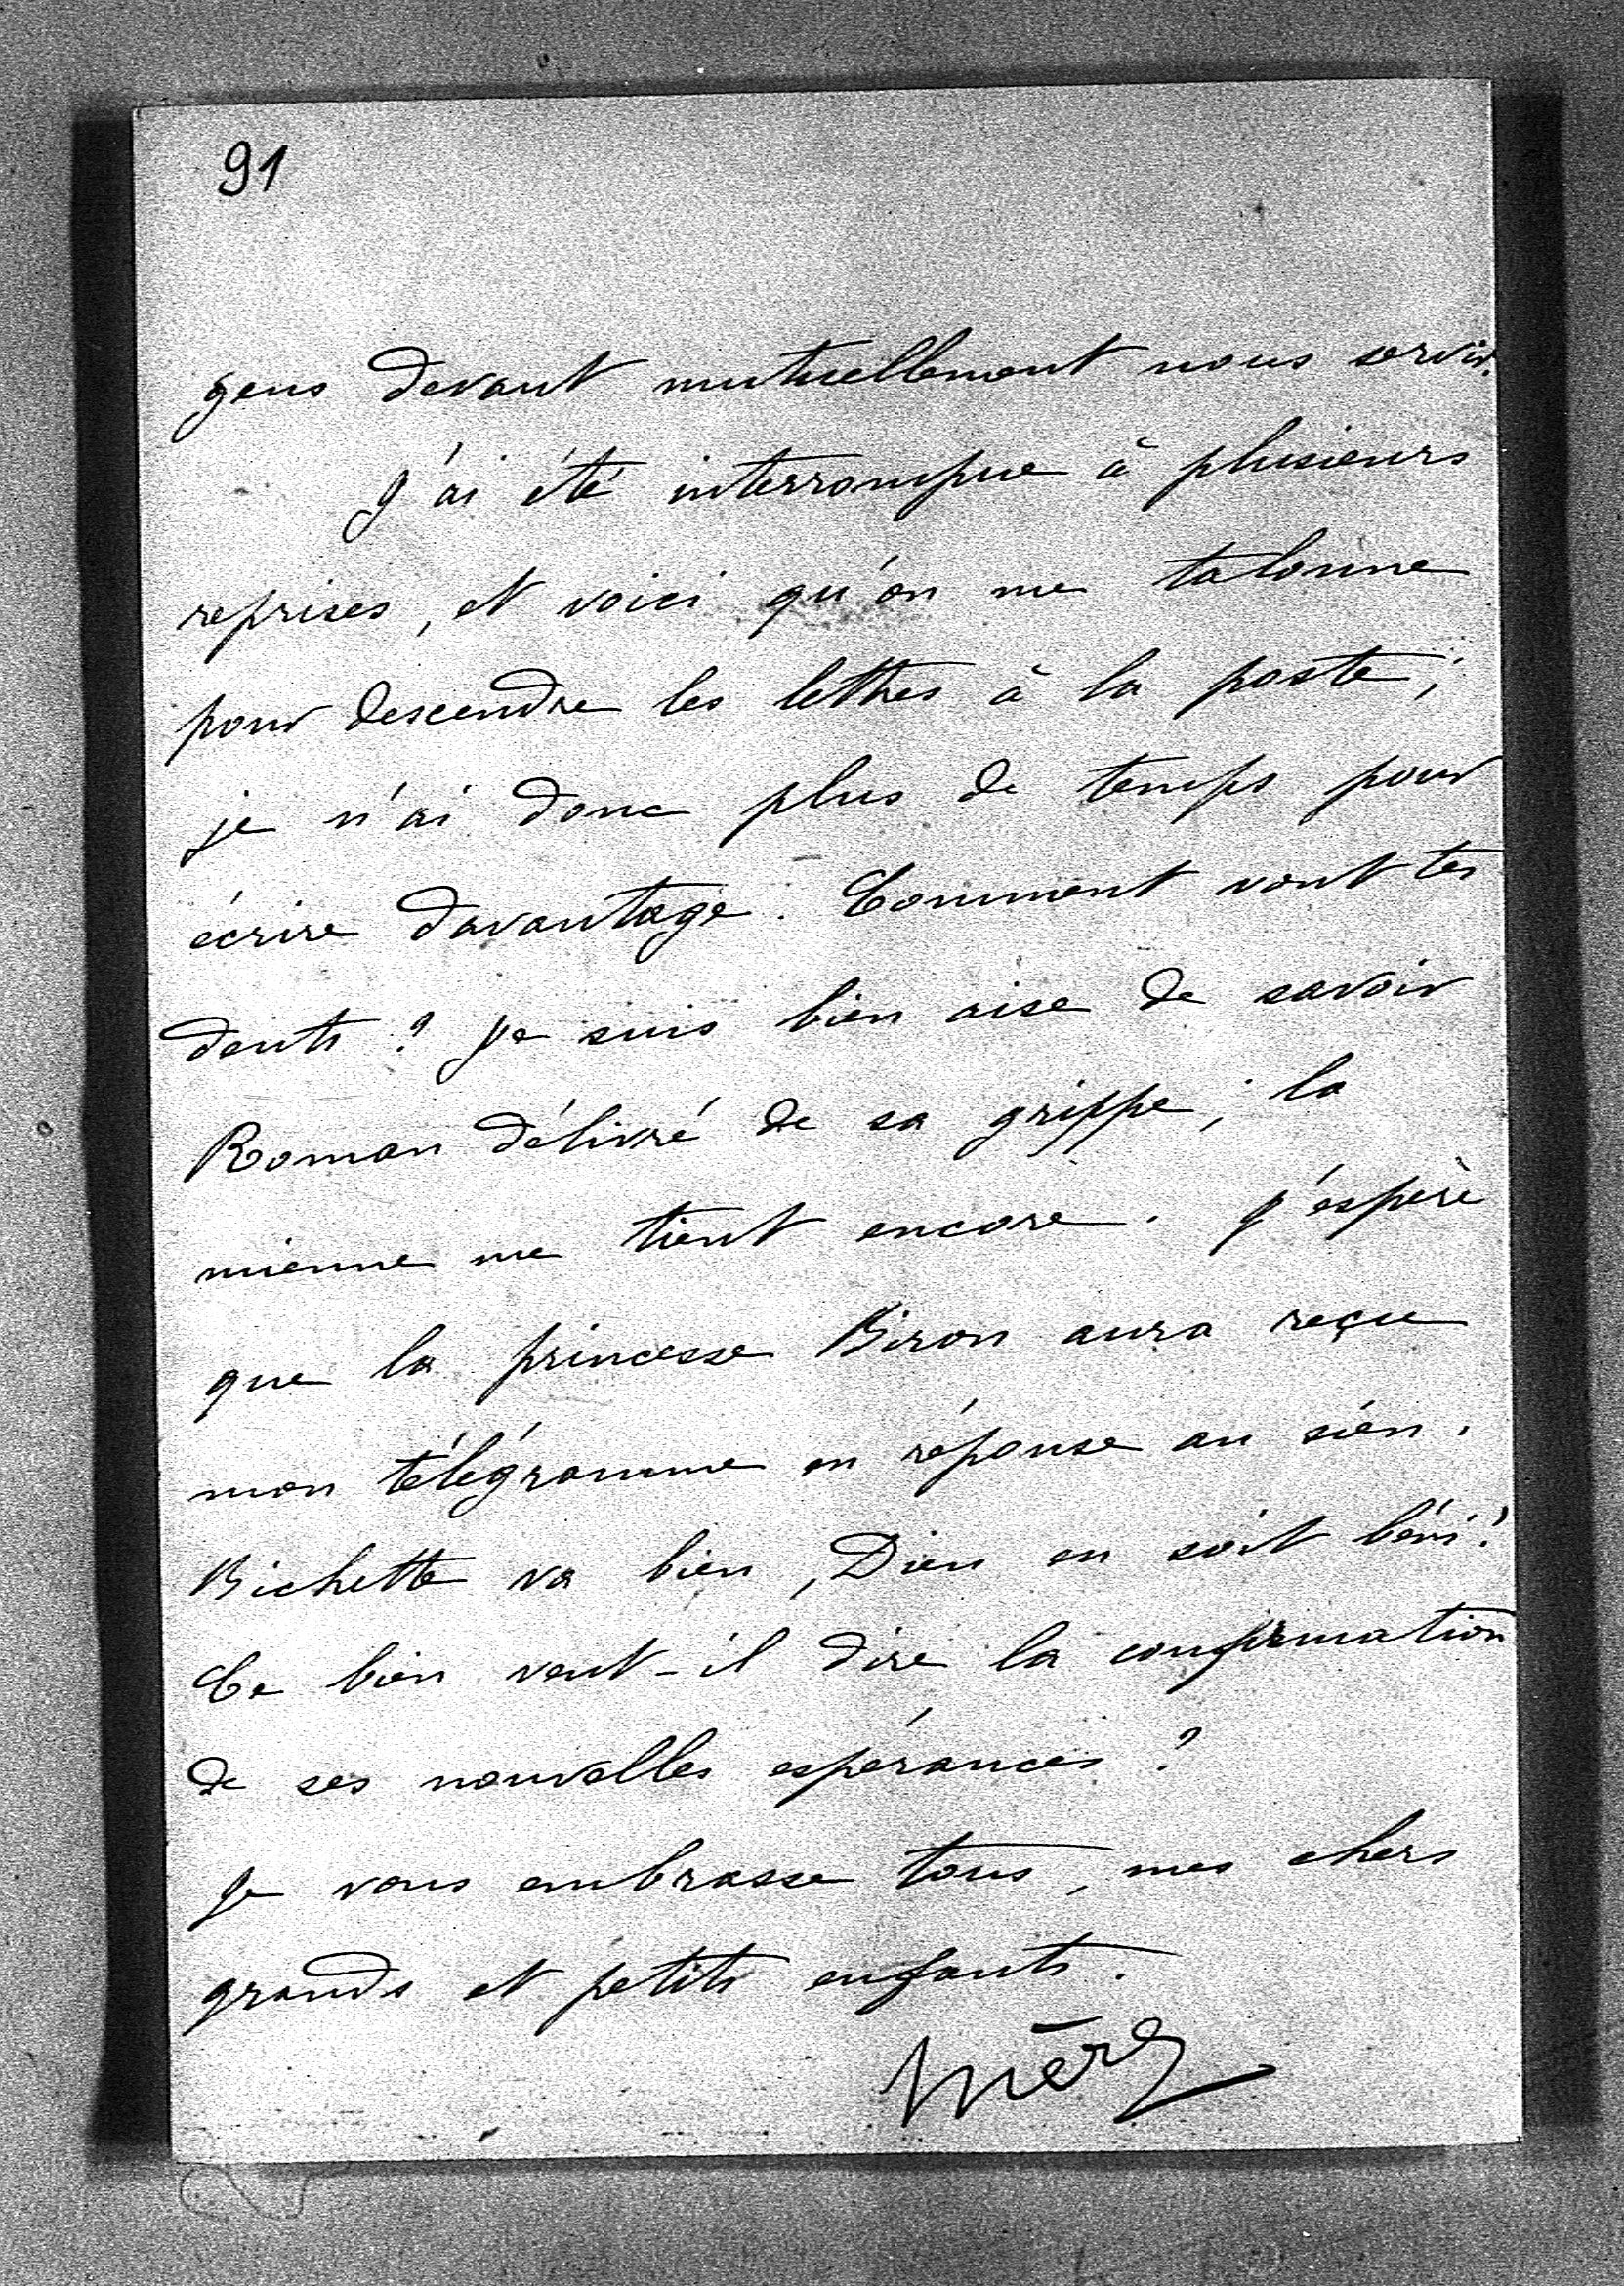 91
gens devant mutuellement nous servir.
J'ai été interrompue à plusieurs
reprises, et voici qu'on me talonne
pour descendre les lettres à la poste;
je n'ai donc plus de temps pour
écrire davantage. Comment vont tes
dents? Je suis bien aise de savoir
Roman délivré de sa grippe; la
mienne me tient encore. J'espère
que la princesse Biron aura reçu
mon télégramme en réponse au sien.
Bichette va bien, Dieu en soit béni!
Ce bien veut-il dire la confirmation
de ses nouvelles espérances?
Je vous embrasse tous, mes chers
grands et petits enfants.
Mère